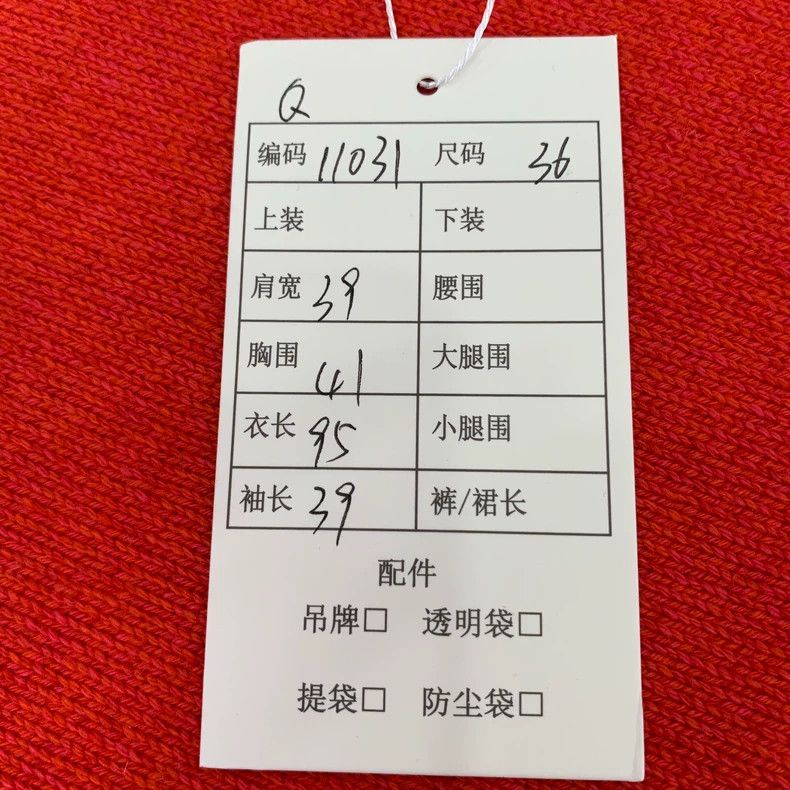 Q
编码 11031 尺码 36
上装 下装
肩宽 39 腰围
胸围 41 大腿围
衣长 95 小腿围
袖长 39 裤/裙长
配件
吊牌□ 透明袋□
提袋□ 防尘袋□